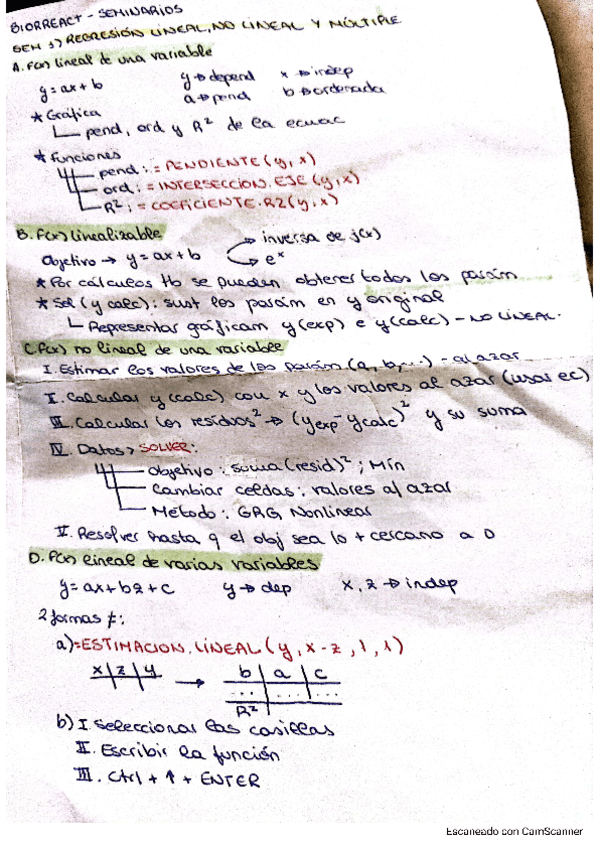 BIORREACT - SEMINARIOS
SEM 1) REGRESIÓN LINEAL, NO LINEAL Y MÚLTIPLE
A. F(x) lineal de una variable
y = ax + b y → depend x → indep
a → pend b → ordenada
* Gráfica
pend, ord y R² de la ecuac
* Funciones
pend: = PENDIENTE (y, x)
ord: = INTERSECCION.EJE (y, x)
R²: = COEFICIENTE.R2 (y, x)
B. F(x) linealizable
Objetivo → y = ax + b inversa de f(x)
eˣ
* Por cálculos tb se pueden obtener todos los parám
* Sol (y calc): sust los parám en y original
Representar gráficam y(exp) e y(calc) - NO LINEAL.
C. F(x) no lineal de una variable
I. Estimar los valores de los parám (a, b, ...) - al azar
II. Calcular y(calc) con x y los valores al azar (usar ec)
III. Calcular los residuos² → (yexp - ycalc)² y su suma
IV. Datos > SOLVER:
Objetivo: suma (resid)²; Mín
Cambiar celdas: valores al azar
Método: GRG Nonlinear
V. Resolver hasta q el obj sea lo + cercano a 0
D. F(x) lineal de varias variables
y = ax + bz + c y → dep x, z → indep
2 formas ≠:
a) = ESTIMACION.LINEAL (y, x - z, 1, 1)
x | z | y → b | a | c
... | ... | ...
R²
b) I. Seleccionar las casillas
II. Escribir la función
III. Ctrl + ↑ + ENTER
Escaneado con CamScanner